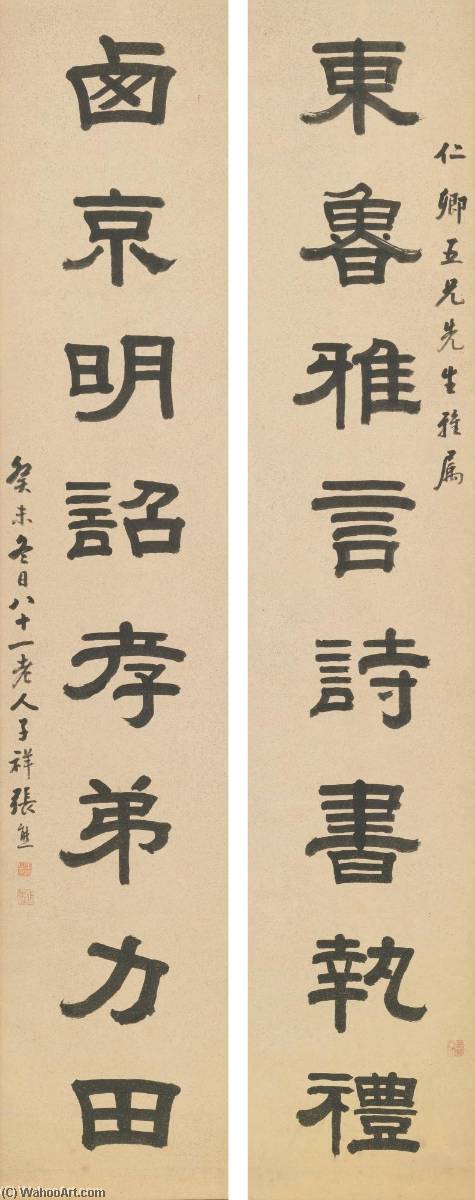 仁卿五兄先生雅属
東魯雅言詩書執禮
卤京明詔孝弟力田
癸未冬日八十一老人子祥張熊
(C) WahooArt.com